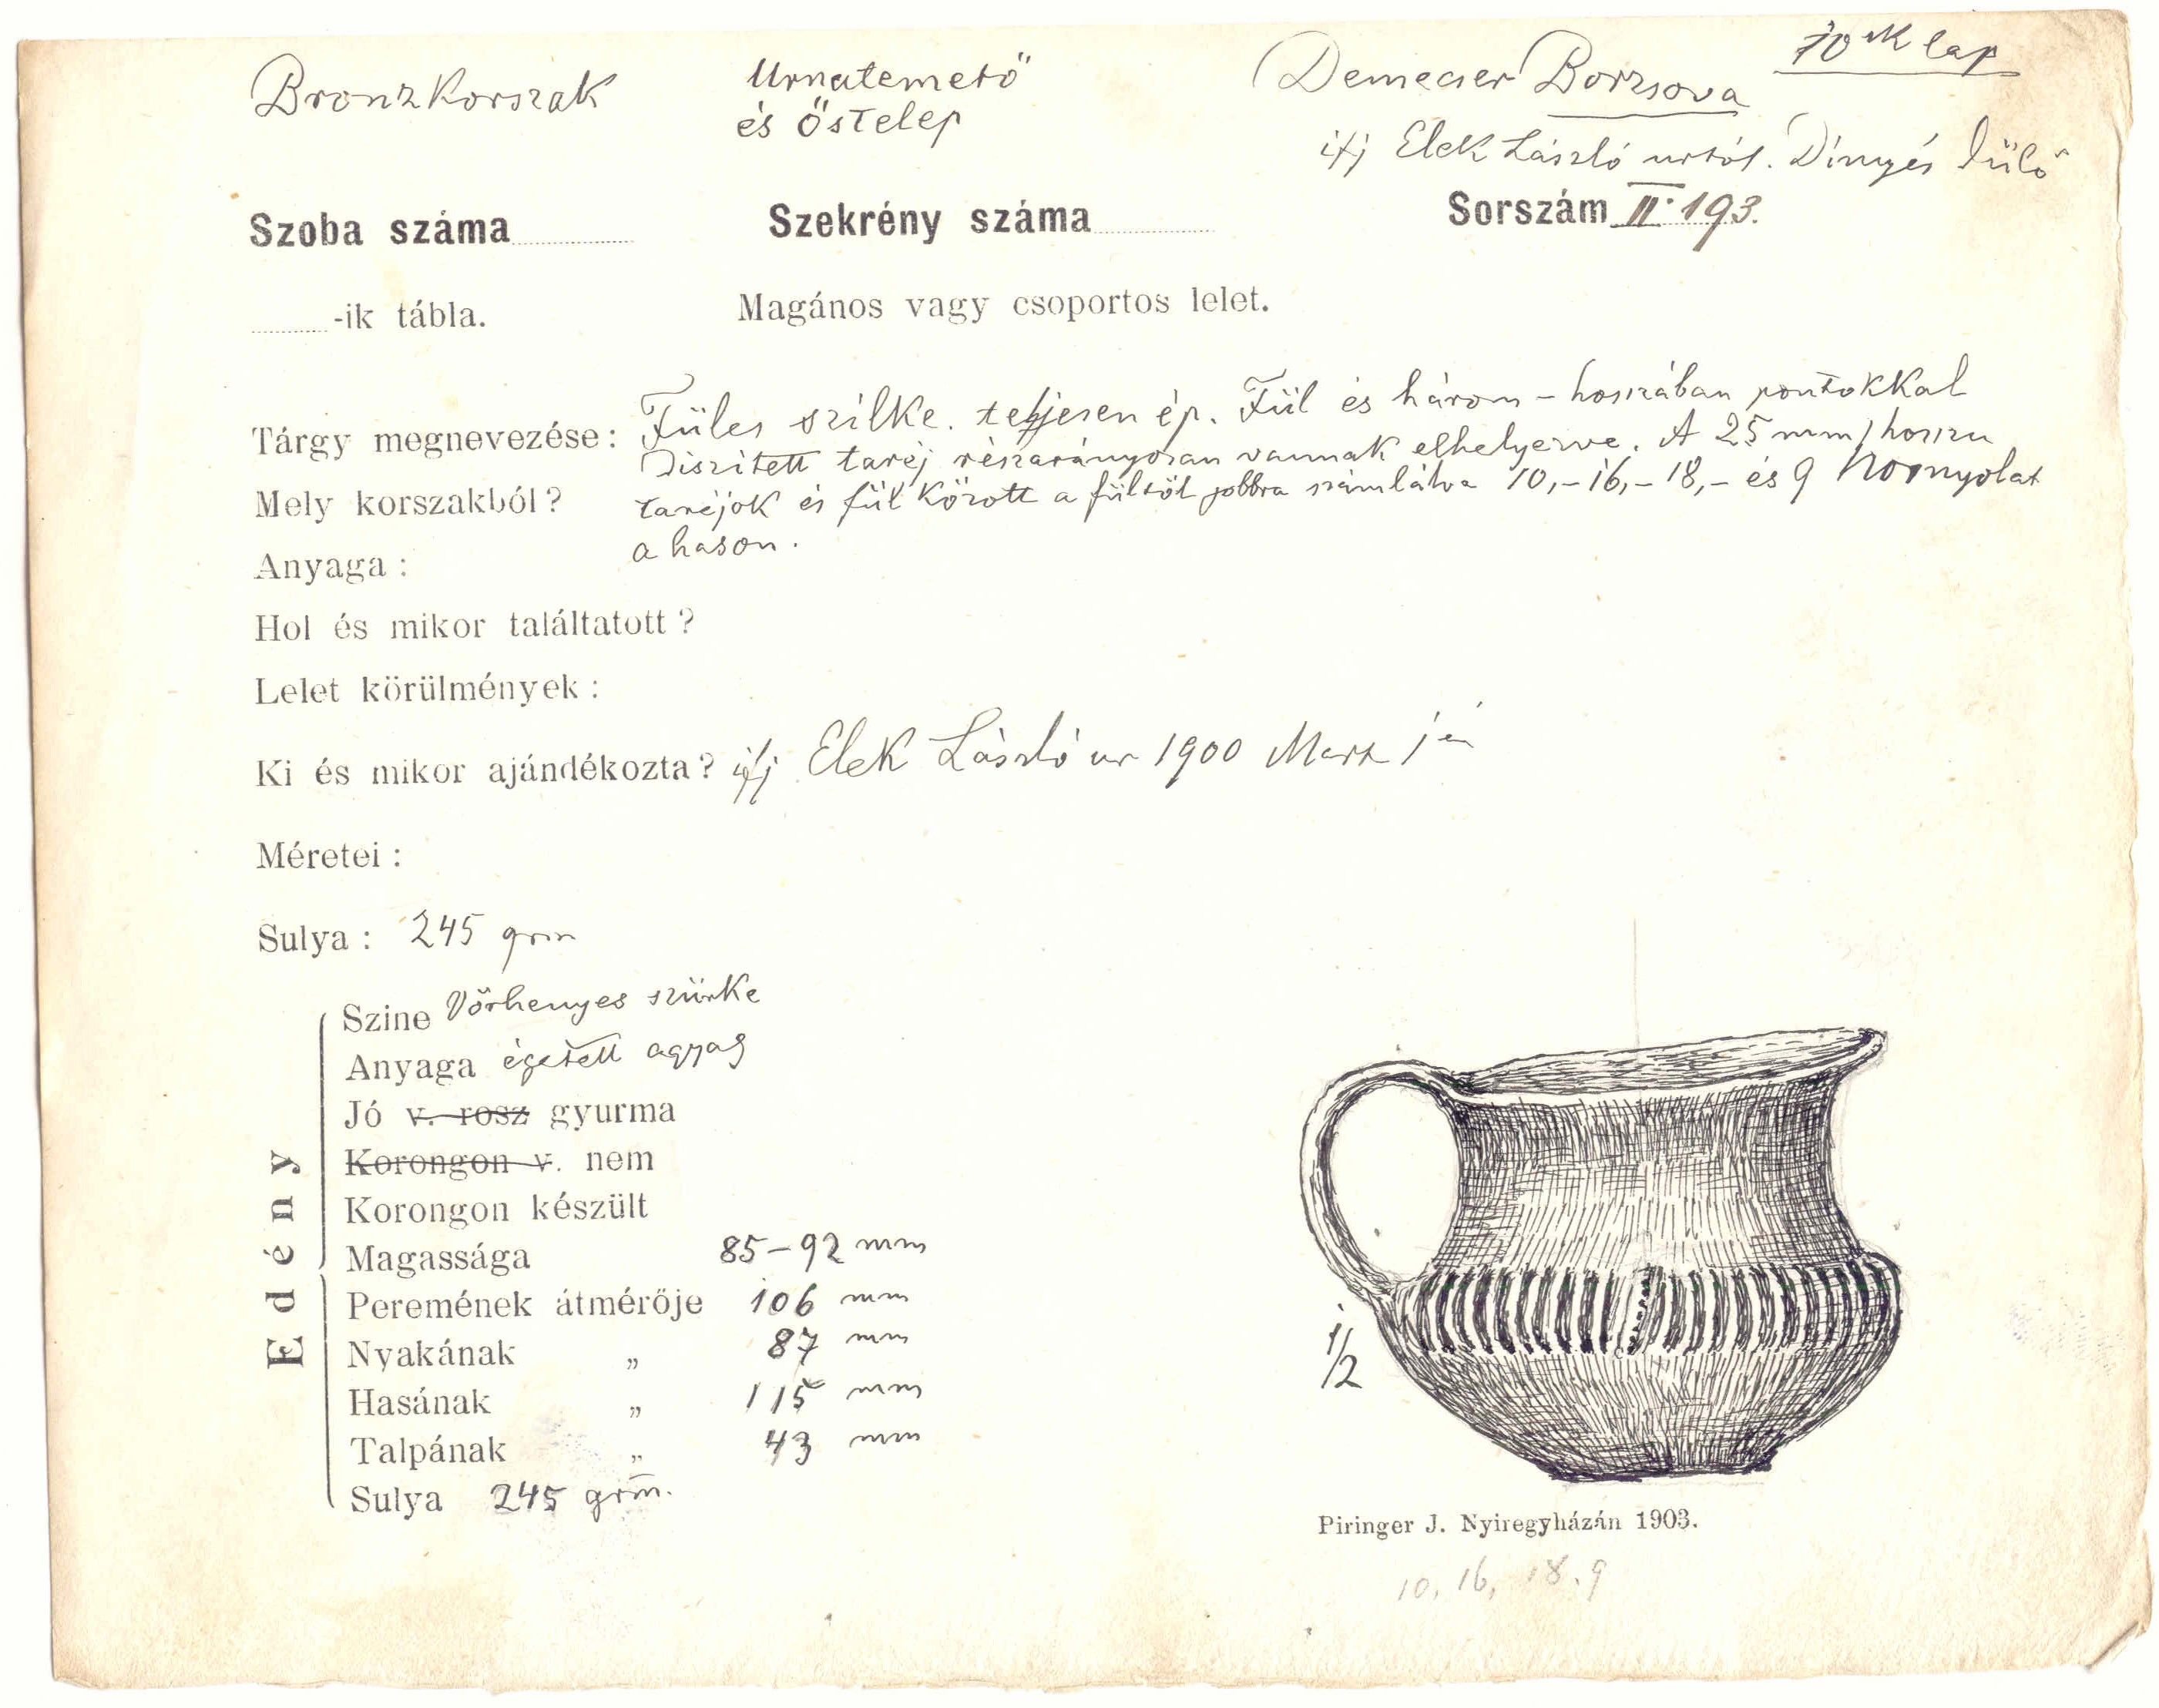 70ik lap
Bronzkorszak
Urnatemető
és őstelep
Demecser Borzsova
ifj Elek László urtól. Dinnyés dülő
Szoba száma
Szekrény száma
Sorszám II. 193.
-ik tábla.
Magános vagy csoportos lelet.
Tárgy megnevezése: Füles szilke. teljesen ép. Fül és három - hosszában pontokkal
Diszitett taréj részarányosan vannak elhelyezve. A 25 mm hosszu
Mely korszakból?
taréjok és fül között a fültől jobbra számlálva 10,-16,-18,- és 9 hornyolat
a hason.
Anyaga:
Hol és mikor találtatott?
Lelet körülmények:
Ki és mikor ajándékozta? ifj Elek László ur 1900 Marz
Méretei:
Sulya: 245 grm
Edény
Szine Vörhenyes szürke
Anyaga égetett agyag
Jó v. rosz gyurma
Korongon v. nem
Korongon készült
Magassága 85-92 mm
Peremének átmérője 106 mm
Nyakának „ 87 mm
Hasának „ 115 mm
Talpának „ 43 mm
Sulya 245 grm.
1/2
Piringer J. Nyiregyházán 1903.
10, 16, 18. 9